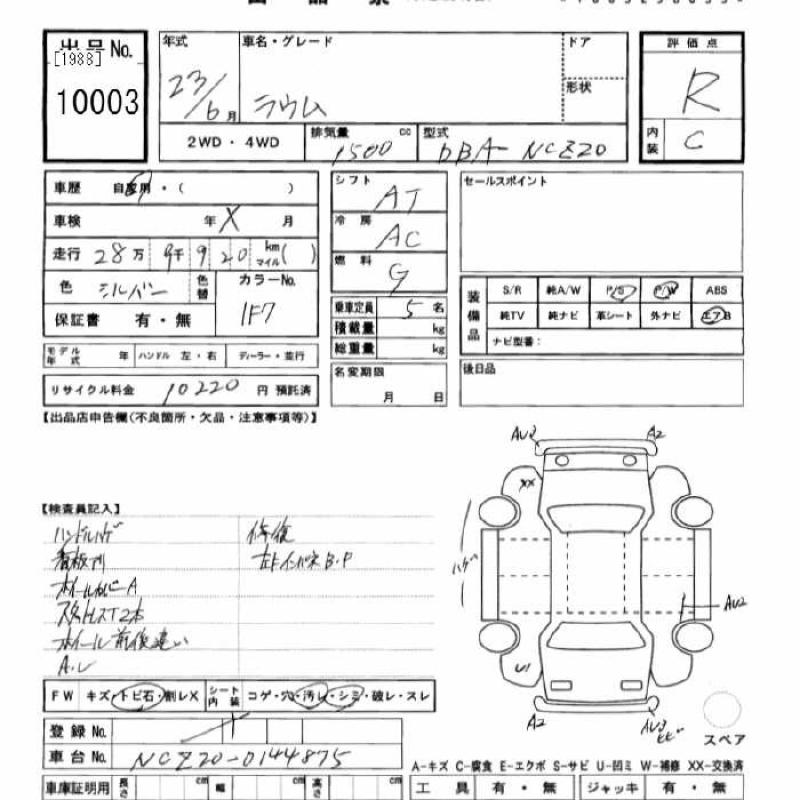 出品番号No.
[1988]
10003
年式
23/6月
車名・グレード
ラウム
ドア
形状
評価点
R
内装
C
2WD・4WD
排気量
1500 cc
型式
DBA-NCZ20
車歴 自家用・( )
車検 年 X 月
走行 28万 9千 9 2 0 km マイル( )
色 シルバー
色替
カラーNo.
1F7
保証書 有・無
モデル年式 年
ハンドル 左・右
ディーラー・並行
リサイクル料金 10220 円 預託済
シフト
AT
冷房
AC
燃料
G
乗車定員 5 名
積載量 kg
総重量 kg
名変期限
月 日
セールスポイント
装備品
S/R 純A/W P/S P/W ABS
純TV 純ナビ 革シート 外ナビ エアB
ナビ型番:
後日品
【出品店申告欄(不良箇所・欠品・注意事項等)】
【検査員記入】
ハンドルハゲ
看板跡
ホイールカバーA
スタッドレスT2本
ホイール前後違い
A.U
修復
左F インパネ B.P
AU3
A2
XX
ハゲ
AU2
U1
A2
AU3
ヒビ
スペア
FW キズ・トビ石・割レX
シート内装 コゲ・穴・汚レ・シミ・破レ・スレ
登録No.
車台No. NCZ20-0144875
A-キズ C-腐食 E-エクボ S-サビ U-凹ミ W-補修 XX-交換済
車庫証明用 長さ cm 幅 cm 高さ cm
工具 有・無 ジャッキ 有・無